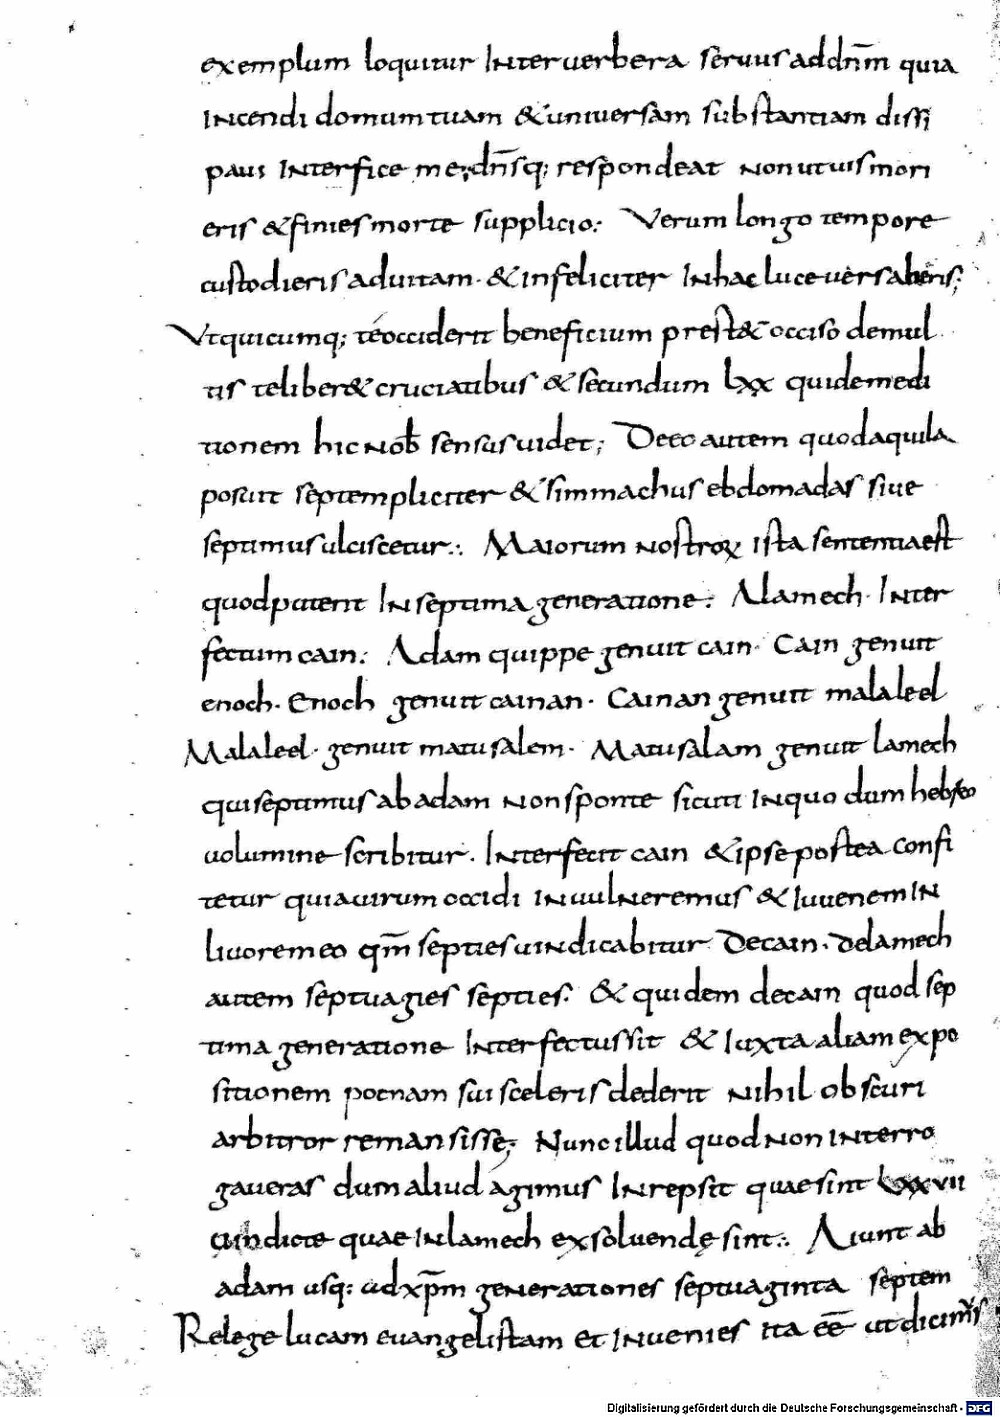 exemplum loquitur Inter verbera servus ad dn̄m quia
Incendi domum tuam & universam substantiam dissi
pavi Interfice me; dn̄sq; respondeat non ut vis mori
eris & finies morte supplicio: Verum longo tempore
custodieris ad vitam· & infeliciter In hac luce versaberis;
Ut quicumq; te occiderit beneficium prest& occiso de mul
tis te liber& cruciatibus & secundum lxx quidem edi
tionem hic nob̄ sensus videt; De eo autem quod aquila
posuit septempliciter & simmachus ebdomadas sive
septimus ulciscetur:. Maiorum nostroꝝ ista sententia est
quod putent In septima generatione: A lamech· Inter
fectum cain: Adam quippe genuit cain· Cain genuit
enoch· Enoch genuit cainan· Cainan genuit malaleel
Malaleel· genuit matusalem· Matusalam genuit lamech
qui septimus ab adam non sponte sicuti In quodum hebreo
volumine scribitur. Interfecit cain & ipse postea confi
tetur quia virum occidi In vulnere mus & Iuvenem In
livore meo qm̄ septies vindicabitur De cain· de lamech
autem septuagies septies: & quidem de cain quod sep
tima generatione Interfectus sit & Iuxta aliam expo
sitionem poenam sui sceleris dederit nihil obscuri
arbitror remansisse; Nunc illud quod non interro
gaveras dum aliud agimus Inrepsit quae sint Lxxvii
vindicte quae In lamech exsolvendę sint:. Aiunt ab
adam usq: ad xp̄m generationes septuaginta septem
Relege lucam evangelistam et Invenies ita eē ut dicimus
Digitalisierung gefördert durch die Deutsche Forschungsgemeinschaft - DFG